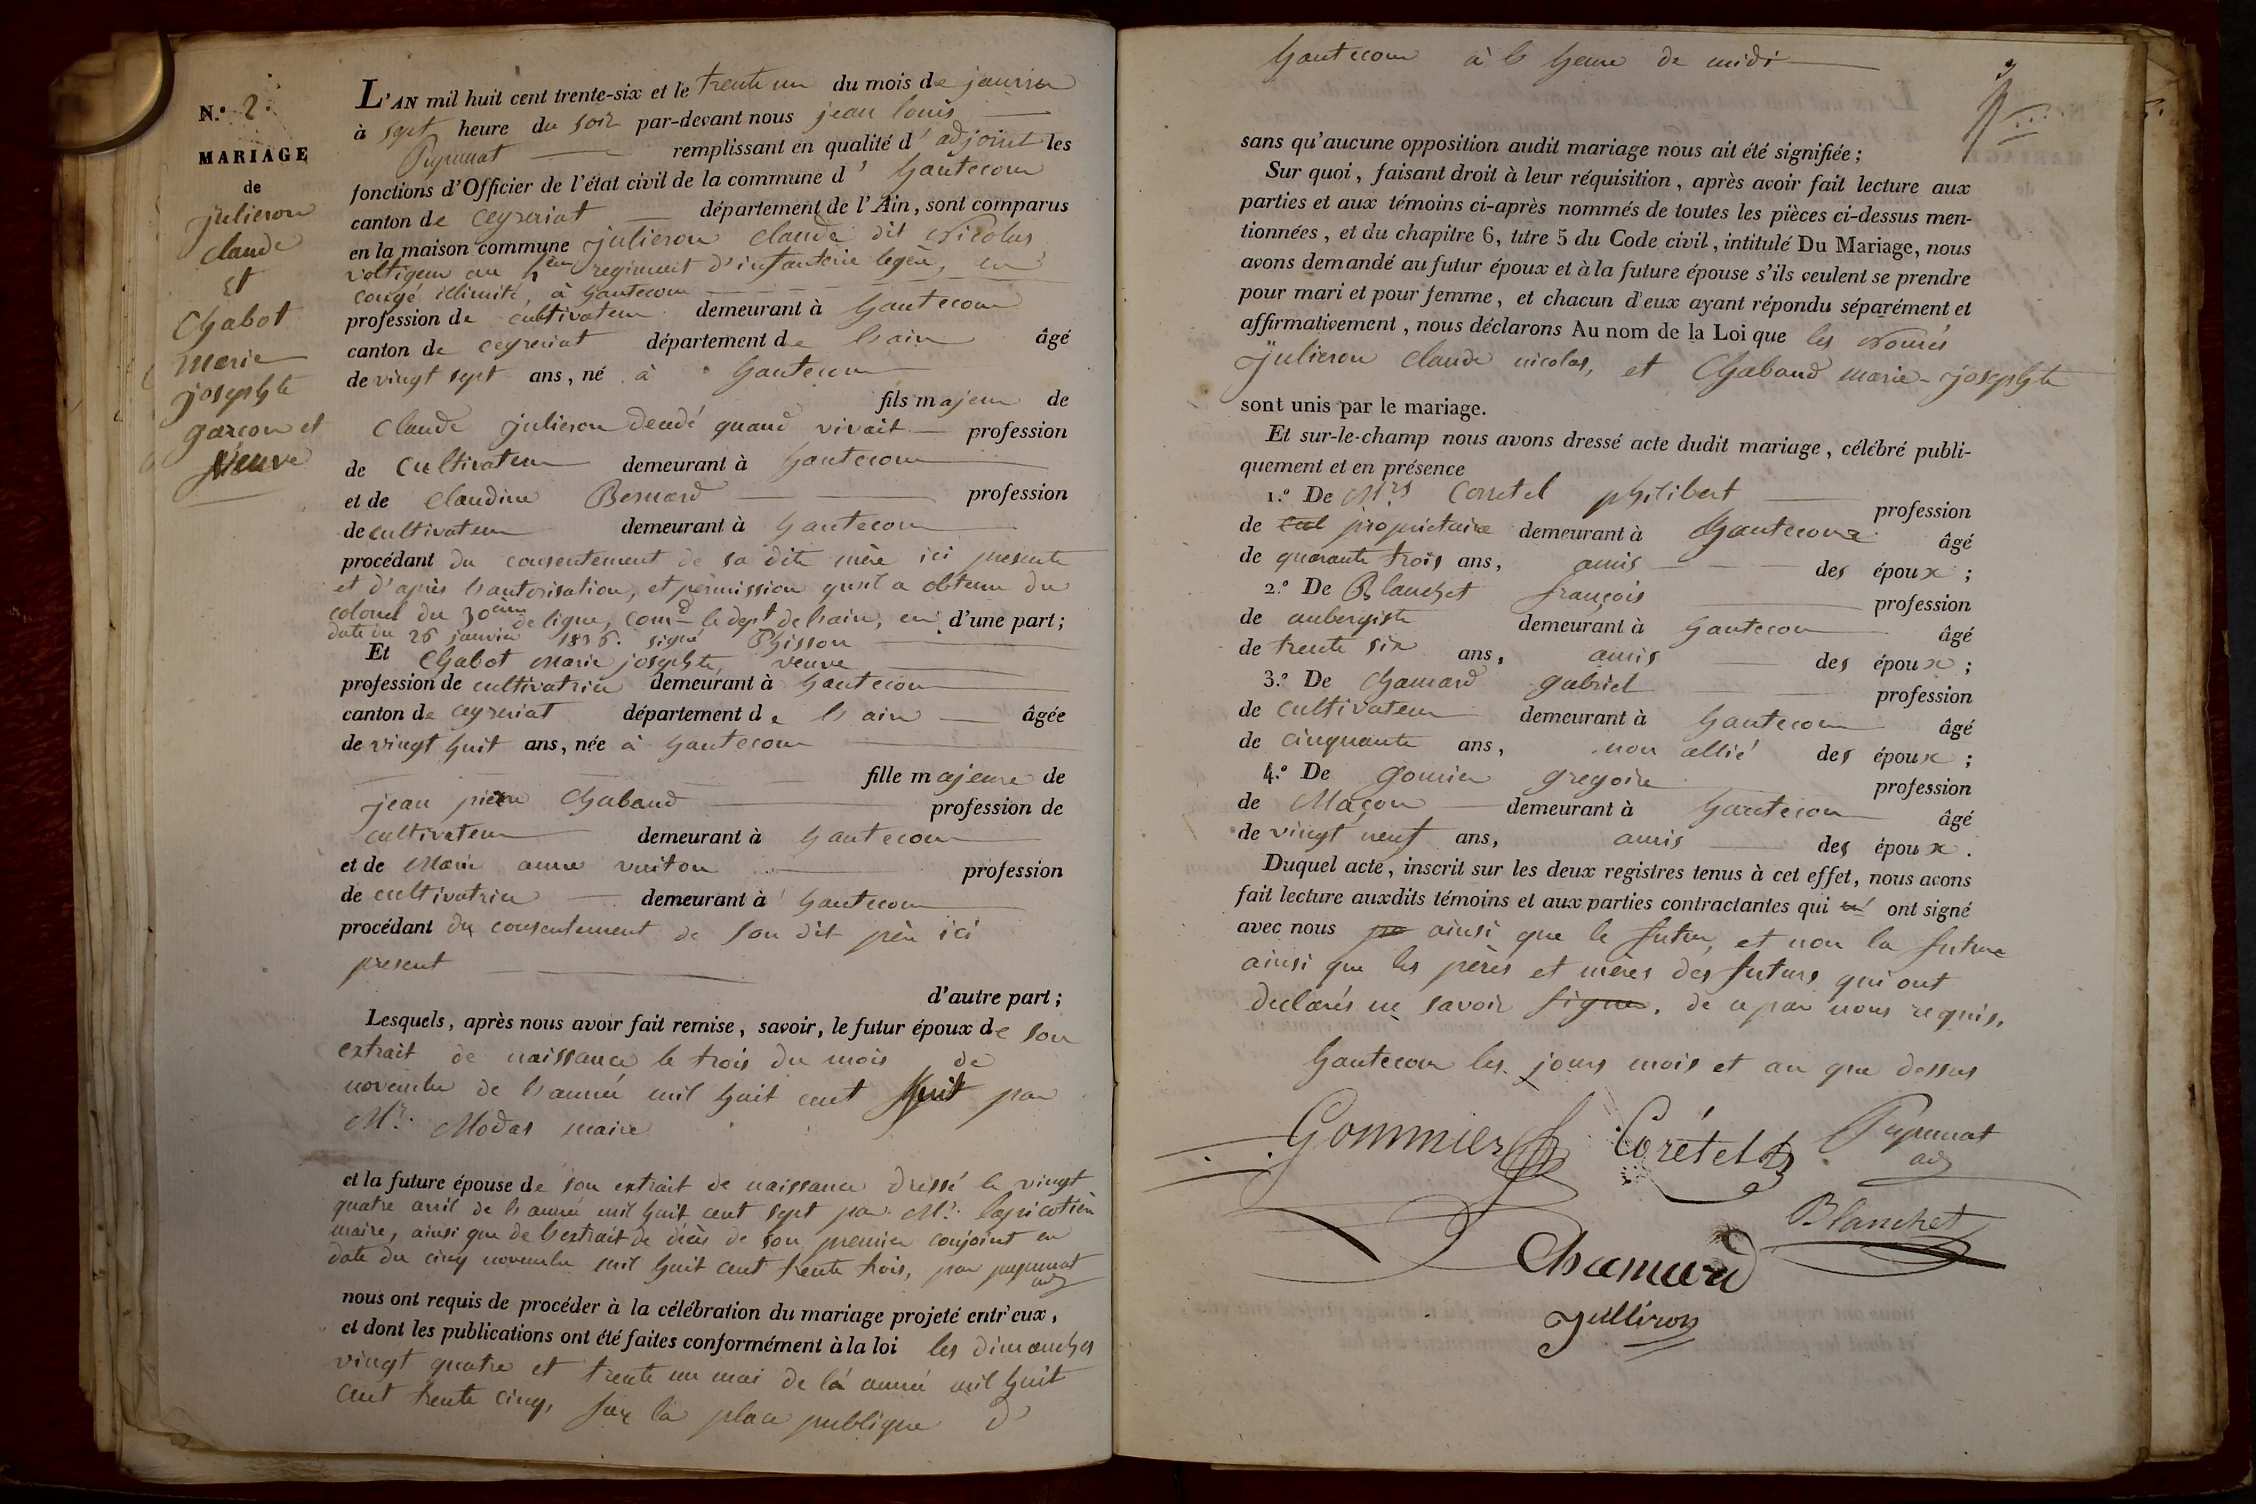 N.° 2.
MARIAGE
de
julieron
claude
et
Chabot
marie
josephte
garçon et
veuve
L'AN mil huit cent trente-six et le trente un du mois de janvier
à sept heure du soir par-devant nous jean louis
Pupunat remplissant en qualité d'adjoint les
fonctions d'Officier de l'état civil de la commune d' hautecour
canton de ceyzeriat département de l'Ain, sont comparus
en la maison commune julieron claude dit Nicolas
voltigeur au regiment d'infanterie legère, en
congé illimité, à hautecour
profession de cultivateur demeurant à hautecour
canton de ceyzeriat département de l'ain âgé
de vingt sept ans, né à hautecour
fils majeur de
Claude julieron deudé quand vivait profession
de Cultivateur demeurant à hautecour
et de claudine Bernard profession
de cultivateur demeurant à hautecour
procédant du consentement de sa dite mère ici presente
et d'après l'autorisation, et permission qu'il a obtenu du
colonel du 30ème de ligne, comd le dept de l'ain, en d'une part;
date du 26 janvier 1836. signé
Et Chabot Marie josephte, veuve
profession de cultivatrice demeurant à hautecour
canton de ceyzeriat département de l'ain âgée
de vingt huit ans, née à hautecour
fille majeure de
jean pierre Chabaud profession de
cultivateur demeurant à hautecour
et de Marie anne vuiton profession
de cultivatrice demeurant à hautecour
procédant du consentement de son dit père ici
present
d'autre part;
Lesquels, après nous avoir fait remise, savoir, le futur époux de son
extrait de naissance le trois du mois de
novembre de l'année mil huit cent huit par
Mr. Modas maire
et la future épouse de son extrait de naissance dressé le vingt
quatre avril de l'année mil huit cent sept par Mr.
maire, ainsi que de l'extrait de décès de son premier conjoint en
date du cinq novembre mil huit cent trente trois, par pupunat
adj
nous ont requis de procéder à la célébration du mariage projeté entr'eux,
et dont les publications ont été faites conformément à la loi les dimanches
vingt quatre et trente un mai de la année mil huit
cent trente cinq, sur la place publique d'
hautecour à l'heure de midi
sans qu'aucune opposition audit mariage nous ait été signifiée;
Sur quoi, faisant droit à leur réquisition, après avoir fait lecture aux
parties et aux témoins ci-après nommés de toutes les pièces ci-dessus men-
tionnées, et du chapitre 6, titre 5 du Code civil, intitulé Du Mariage, nous
avons demandé au futur époux et à la future épouse s'ils veulent se prendre
pour mari et pour femme, et chacun d'eux ayant répondu séparément et
affirmativement, nous déclarons Au nom de la Loi que les només
julieron claude nicolas, et Chabaud marie-josephte
sont unis par le mariage.
Et sur-le-champ nous avons dressé acte dudit mariage, célébré publi-
quement et en présence
1.° De Mrs Corretel philibert profession
de cul propriétaire demeurant à hautecour âgé
de quarante trois ans, amis des époux;
2.° De Blanchet françois profession
de aubergiste demeurant à hautecour âgé
de trente six ans, amis des époux;
3.° De Chamard gabriel profession
de cultivateur demeurant à hautecour âgé
de cinquante ans, non allié des époux;
4.° De gomier gregoire profession
de Maçon demeurant à hautecour âgé
de vingt neuf ans, amis des époux.
Duquel acte, inscrit sur les deux registres tenus à cet effet, nous avons
fait lecture auxdits témoins et aux parties contractantes qui ont signé
avec nous ainsi que le futur, et non la future
ainsi que les pères et mères des futurs qui ont
declarés ne savoir signer. de ce par nous requis,
hautecour les jours mois et an que dessus
Gommier Corétel Pupunat
adj
Blanchet
Chamard
Julliron